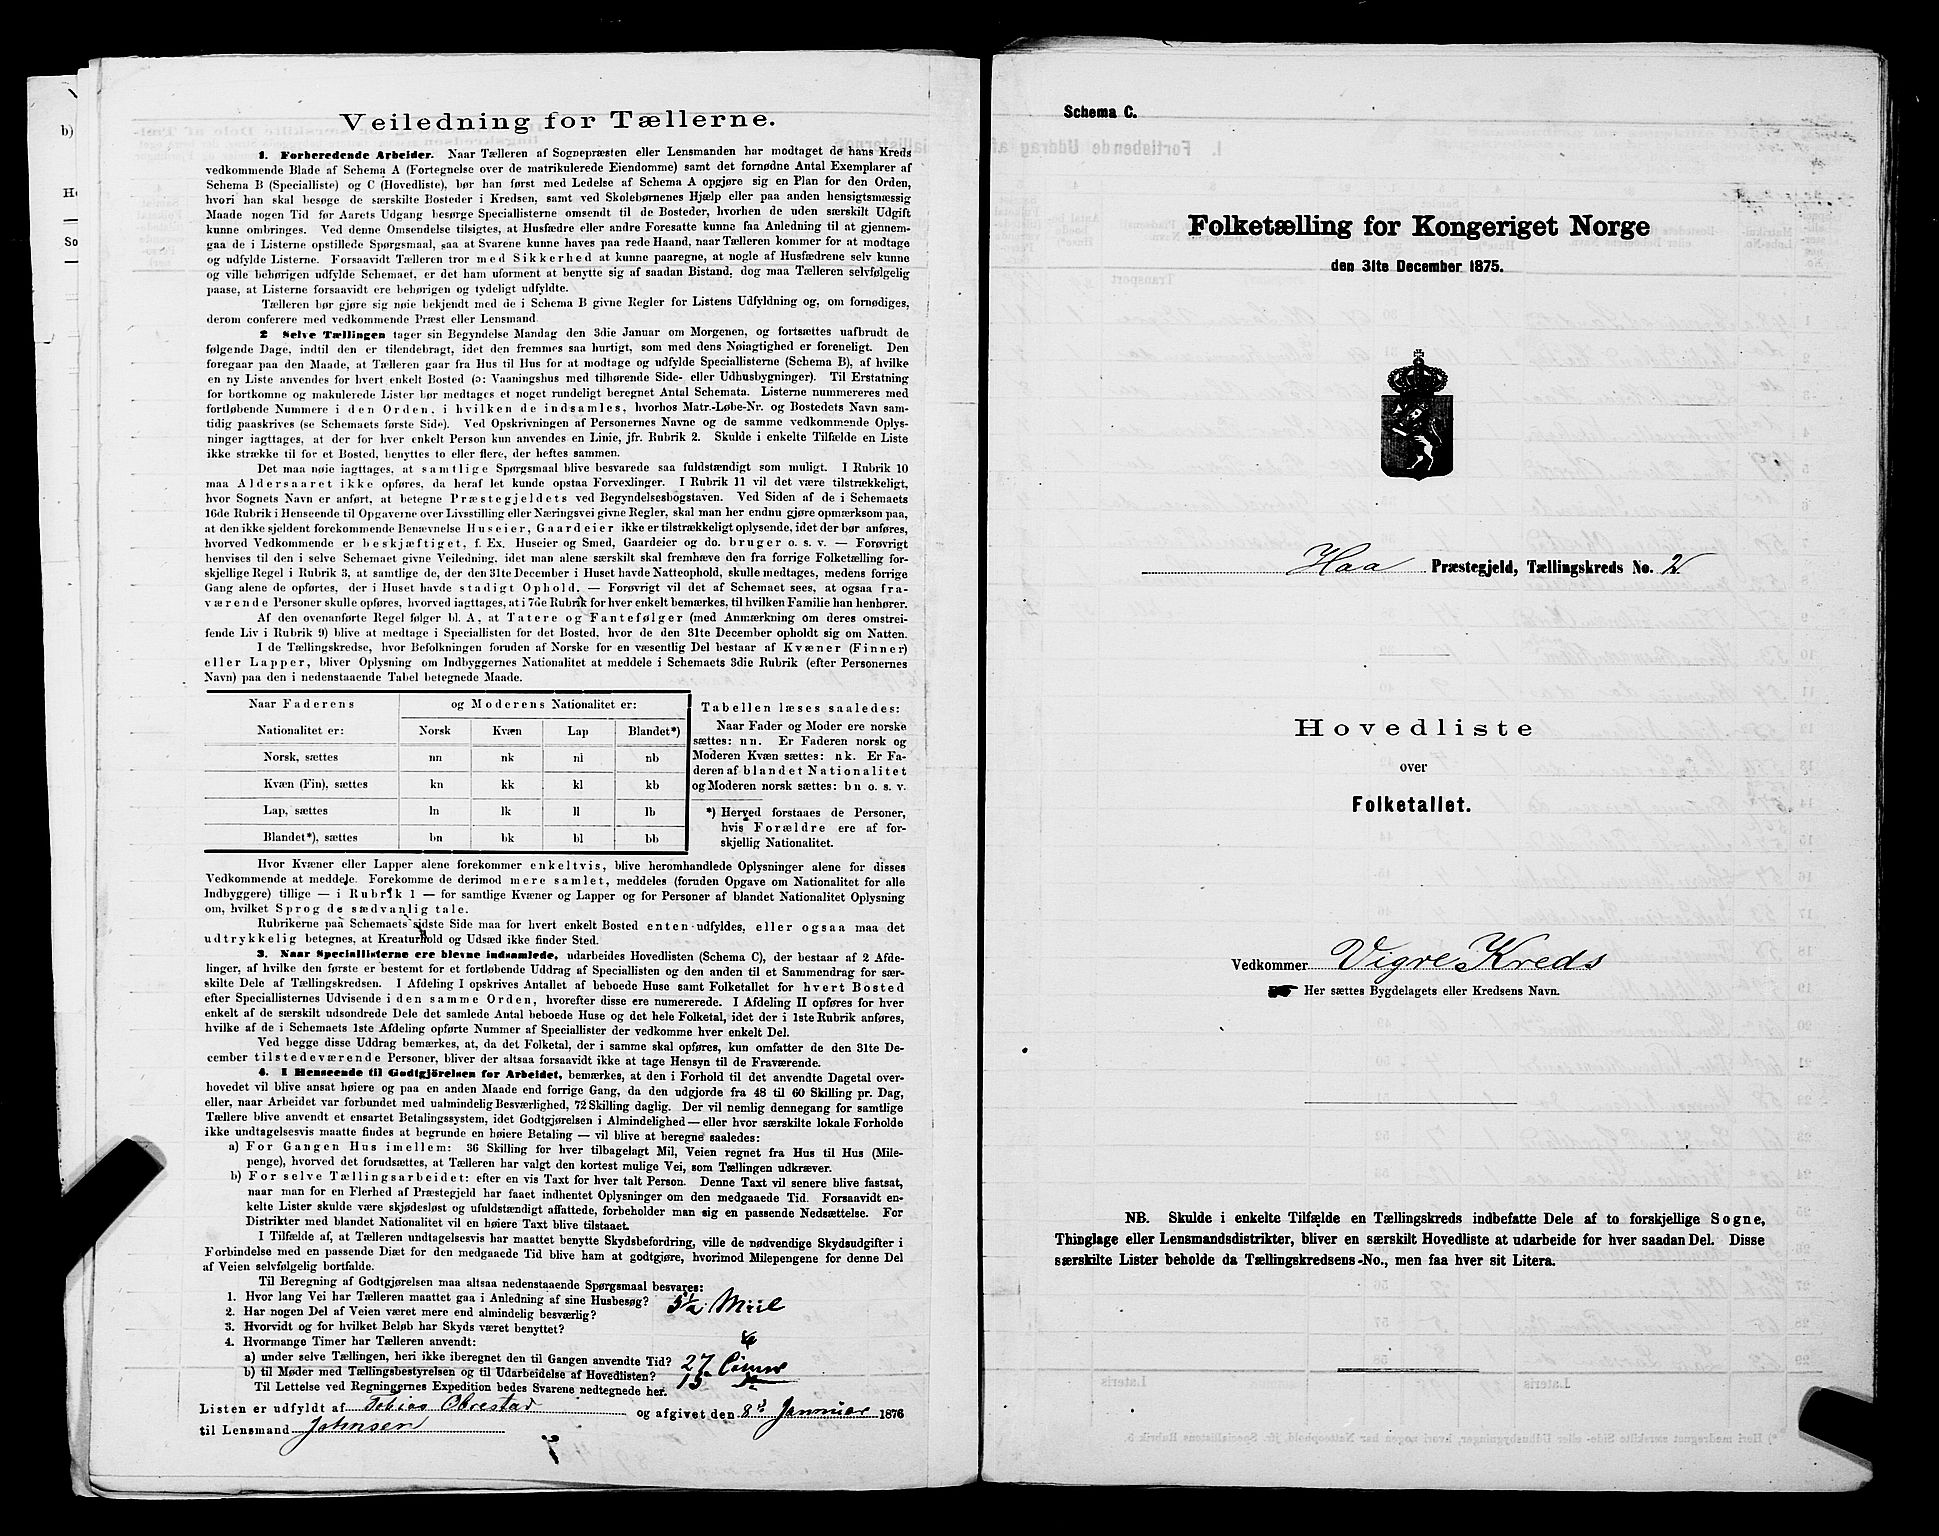 b)
Veiledning for Tællerne.
1. Forberedende Arbeider. Naar Tælleren af Sognepræsten eller Lensmanden har modtaget de hans Kreds
vedkommende Blade af Schema A (Fortegnelse over de matrikulerede Eiendomme) samt det fornødne Antal Exemplarer af
Schema B (Specialliste) og C (Hovedliste), bør han først med Ledelse af Schema A opgjøre sig en Plan for den Orden,
hvori han skal besøge de særskilte Bosteder i Kredsen, samt ved Skolebørnenes Hjælp eller paa anden hensigtsmæssig
Maade nogen Tid før Aarets Udgang besørge Speciallisterne omsendt til de Bosteder, hvorhen de uden særskilt Udgift
kunne ombringes. Ved denne Omsendelse tilsigtes, at Husfædre eller andre Foresatte kunne faa Anledning til at gjennem-
gaa de i Listerne opstillede Spørgsmaal, saa at Svarene kunne haves paa rede Haand, naar Tælleren kommer for at modtage
og udfylde Listerne. Forsaavidt Tælleren tror med Sikkerhed at kunne paaregne, at nogle af Husfædrene selv kunne
og ville behørigen udfylde Schemaet, er det ham uforment at benytte sig af saadan Bistand, dog maa Tælleren selvfølgelig
paase, at Listerne forsaavidt ere behørigen og tydeligt udfyldte.
Tælleren bør gjøre sig nøie bekjendt med de i Schema B givne Regler for Listens Udfyldning og, om fornødiges,
derom conferere med vedkommende Præst eller Lensmand.
2 Selve Tællingen tager sin Begyndelse Mandag den 3die Januar om Morgenen, og fortsættes uafbrudt de
følgende Dage, indtil den er tilendebragt, idet den fremmes saa hurtigt, som med dens Nøiagtighed er foreneligt. Den
foregaar paa den Maade, at Tælleren gaar fra Hus til Hus for at modtage og udfylde Speciallisterne (Schema B), af hvilke
en ny Liste anvendes for hvert enkelt Bosted (ɔ: Vaaningshus med tilhørende Side- eller Udhusbygninger). Til Erstatning
for bortkomne og makulerede Lister bør medtages et noget rundeligt beregnet Antal Schemata. Listerne nummereres med
fortløbende Nummere i den Orden, i hvilken de indsamles, hvorhos Matr.-Løbe-Nr. og Bostedets Navn sam-
tidig paaskrives (se Schemaets første Side). Ved Opskrivningen af Personernes Navne og de samme vedkommende Oplys-
ninger iagttages, at der for hver enkelt Person kun anvendes en Linie, jfr. Rubrik 2. Skulde i enkelte Tilfælde en Liste
ikke strække til for et Bosted, benyttes to eller flere, der heftes sammen.
Det maa nøie iagttages, at samtlige Spørgsmaal blive besvarede saa fuldstændigt som muligt. I Rubrik 10
maa Aldersaaret ikke opføres, da heraf let kunde opstaa Forvexlinger. I Rubrik 11 vil det være tilstrækkeligt,
hvor Sognets Navn er anført, at betegne Præstegjeldets ved Begyndelsesbogstaven. Ved Siden af de i Schemaets
16de Rubrik i Henseende til Opgaverne over Livsstilling eller Næringsvei givne Regler, skal man her endnu gjøre opmærksom paa,
at den ikke sjeldent forekommende Benævnelse Huseier, Gaardeier ikke er tilstrækkeligt oplysende, idet der bør anføres,
hvorved Vedkommende er beskjæftiget, f. Ex. Huseier og Smed, Gaardeier og do. bruger o. s. v. — Forøvrigt
henvises til den i selve Schemaet givne Veiledning, idet man alene særskilt skal fremhæve den fra forrige Folketælling for-
skjellige Regel i Rubrik 3, at samtlige de, der den 31te December i Huset havde Natteophold, skulle medtages, medens forrige
Gang alene de opførtes, der i Huset havde stadigt Ophold. — Forøvrigt vil det af Schemaet sees, at ogsaa fra-
værende Personer skulle opføres, hvorved iagttages, at i 7de Rubrik for hver enkelt bemærkes, til hvilken Familie han henhører.
Af den ovenanførte Regel følger bl. A, at Tatere og Fantefølger (med Anmærkning om deres omstrei-
fende Liv i Rubrik 9) blive at medtage i Speciallisten for det Bosted, hvor de den 31te December opholdt sig om Natten.
I de Tællingskredse, hvor Befolkningen foruden af Norske for en væsentlig Del bestaar af Kvæner (Finner)
eller Lapper, bliver Oplysning om Indbyggernes Nationalitet at meddele i Schemaets 3die Rubrik (efter Personernes
Navn) paa den i nedenstaaende Tabel betegnede Maade.
Naar Faderens | og Moderens Nationalitet er:
Nationalitet er: | Norsk | Kvæn | Lap | Blandet*)
Norsk, sættes | nn | nk | nl | nb
Kvæn (Fin), sættes | kn | kk | kl | kb
Lap, sættes | ln | lk | ll | lb
Blandet*), sættes | bn | bk | bl | bb
Tabellen læses saaledes:
Naar Fader og Moder ere norske
sættes: nn. Er Faderen norsk og
Moderen Kvæn sættes: nk. Er Fa-
deren af blandet Nationalitet
og Moderen norsk sættes: bn o. s. v.
*) Herved forstaaes de Personer,
hvis Forældre ere af for-
skjellig Nationalitet.
Hvor Kvæner eller Lapper alene forekommer enkeltvis, blive heromhandlede Oplysninger alene for disses
Vedkommende at meddele. Forekomme de derimod mere samlet, meddeles (foruden Opgave om Nationalitet for alle
Indbyggere) tillige — i Rubrik 1 — for samtlige Kvæner og Lapper og for Personer af blandet Nationalitet Oplysning
om, hvilket Sprog de sædvanlig tale.
Rubrikerne paa Schemaets sidste Side maa for hvert enkelt Bosted enten udfyldes, eller ogsaa maa det
udtrykkelig betegnes, at Kreaturhold og Udsæd ikke finder Sted.
3. Naar Speciallisterne ere blevne indsamlede, udarbeides Hovedlisten (Schema C), der bestaar af 2 Afde-
linger, af hvilke den første er bestemt for et fortløbende Uddrag af Speciallisten og den anden til et Sammendrag for sær-
skilte Dele af Tællingskredsen. I Afdeling I opskrives Antallet af beboede Huse samt Folketallet for hvert Bosted
efter Speciallisternes Udvisende i den samme Orden, hvorefter disse ere numererede. I Afdeling II opføres for hver
enkelt af de særskilt udsondrede Dele det samlede Antal beboede Huse og det hele Folketal, idet der i 1ste Rubrik anføres,
hvilke af de i Schemaets 1ste Afdeling opførte Nummer af Speciallister der vedkomme hver enkelt Del.
Ved begge disse Uddrag bemærkes, at, da det Folketal, der i samme skal opføres, kun omfatter de den 31te De-
cember tilstedeværende Personer, bliver der altsaa forsaavidt ikke at tage Hensyn til de Fraværende.
4. I Henseende til Godtgjörelsen for Arbeidet, bemærkes, at den i Forhold til det anvendte Dagetal over-
hovedet vil blive ansat høiere og paa en anden Maade end forrige Gang, da den udgjorde fra 48 til 60 Skilling pr. Dag,
eller, naar Arbeidet var forbundet med ualmindelig Besværlighed, 72 Skilling daglig. Der vil nemlig dennegang for samtlige
Tællere blive anvendt et ensartet Betalingssystem, idet Godtgjørelsen i Almindelighed — eller hvor særskilte lokale Forholde
ikke undtagelsesvis maatte findes at begrunde en høiere Betaling — vil blive at beregne saaledes:
a) For Gangen Hus imellem: 36 Skilling for hver tilbagelagt Mil, Veien regnet fra Hus til Hus (Mile-
penge), hvorved det forudsættes, at Tælleren har valgt den kortest mulige Vei, som Tællingen udkræver.
b) For selve Tællingsarbeidet: efter en vis Taxt for hver talt Person. Denne Taxt vil senere blive fastsat,
naar man for en Flerhed af Præstegjeld har faaet indhentet Oplysninger om den medgaaede Tid. Forsaavidt en-
kelte Lister skulde være skjødesløst og ufuldstændigt affattede, forbeholder man sig en passende Nedsættelse. For
Distrikter med blandet Nationalitet vil en høiere Taxt blive tilstaaet.
I Tilfælde af, at Tælleren undtagelsesvis har maattet benytte Skydsbefordring, ville de nødvendige Skydsudgifter i
Forbindelse med en passende Diæt for den medgaaede Tid blive ham at godtgjøre, hvorimod Milepengene for denne Del
af Veien selvfølgelig bortfalde.
Til Beregning af Godtgjørelsen maa altsaa nedenstaaende Spørgsmaal besvares:
1. Hvor lang Vei har Tælleren maattet gaa i Anledning af sine Husbesøg? 5½ Miil
2. Har nogen Del af Veien været mere end almindelig besværlig?
3. Hvorvidt og for hvilket Beløb har Skyds været benyttet?
4. Hvormange Timer har Tælleren anvendt:
a) under selve Tællingen, heri ikke iberegnet den til Gangen anvendte Tid? 27
b) til Møder med Tællingsbestyrelsen og til Udarbeidelse af Hovedlisten? 15
Til Lettelse ved Regningernes Expedition bedes Svarene nedtegnede her.
Listen er udfyldt af Tobias Obrestad og afgivet den 8de Januar 1876
til Lensmand Johnsen
Schema C.
Folketælling for Kongeriget Norge
den 31te December 1875.
Haa Præstegjeld, Tællingskreds No. 2
Hovedliste
over
Folketallet.
Vedkommer Vigre Kreds
Her sættes Bygdelagets eller Kredsens Navn.
NB. Skulde i enkelte Tilfælde en Tællingskreds indbefatte Dele af to forskjellige Sogne,
Thinglage eller Lensmandsdistrikter, bliver en særskilt Hovedliste at udarbeide for hver saadan Del. Disse
særskilte Lister beholde da Tællingskredsens-No., men faa hver sit Litera.